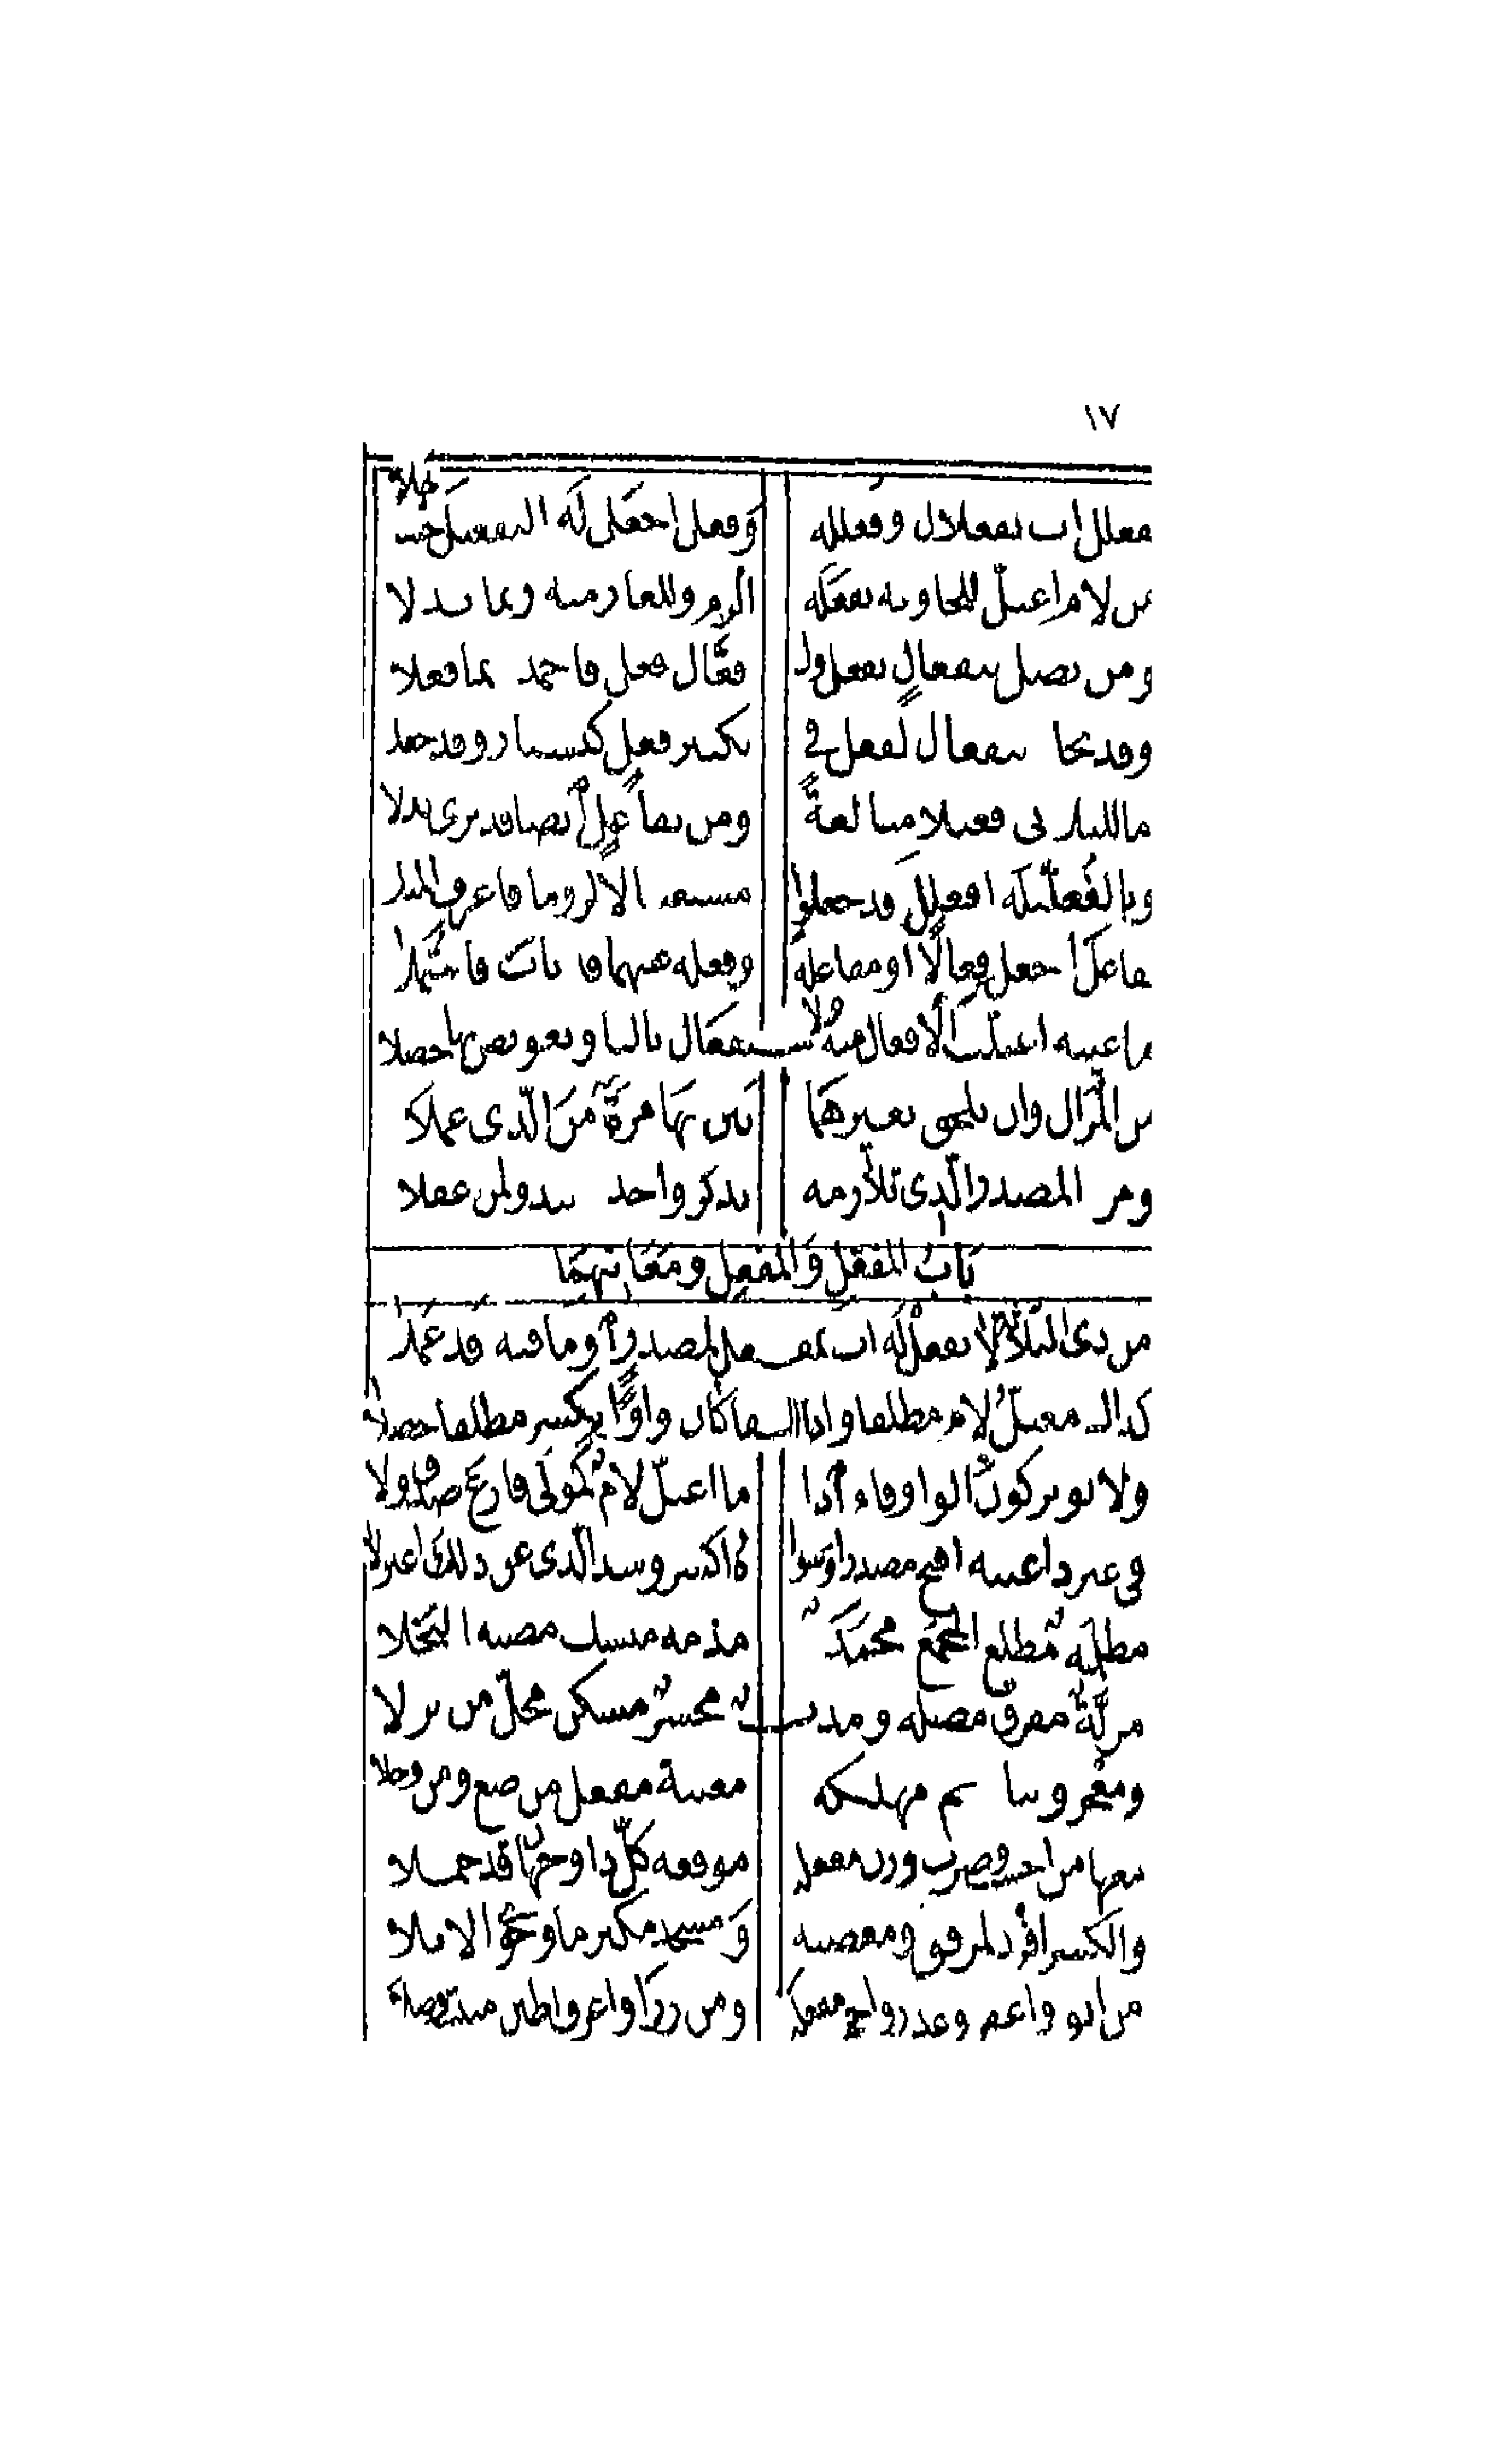 ١٧
فعلل ائت بفعلال وفعللة وفعل اجعل له التفعيل حيث خلا
من لام اعتل للحاويه تفعلة الزم وللعار منه ربما بذلا
ومن يصل بتفعال تفعل وال فعال فعل فاحمد بما فعلا
وقد يجا بتفعال لفعل في تكثير فعل كتسيار وقد جعلا
ما للثلاثي فعيلا مبالغة ومن تفاعل أيضا قد يرى بدلا
وبالفعليلة افعلل قد جعلوا مستغنيا لا لزوما فاعرف المثلا
لفاعل اجعل فعالا او مفاعلة وفعلة عنهما قد ناب فاحتملا
ما عينه اعتلت الافعال منه والاستفعال بالتا وتعويض بها حصلا
من المزال وان تلحق بغيرهما تبن بها مرة من الذي عملا
ومر المصدر الذي تلازمه بذكر واحد تبدو لمن عقلا
باب المفعل والمفعل ومعانيهما
من ذي الثلاثة لا يفعل له ائت بمفعل لمصدر أو ما فيه قد عملا
كذاك معتل لام مطلقا واذا الفا كان واوا بكسر مطلقا حصلا
ولا يوثر كون الواو فاء اذا ما اعتل لام كمولى فارع صدق ولا
في غير ذا عينه افتح مصدرا وسوا ه اكسر وشذ الذي عن ذلك اعتزلا
مظلمة مطلع المجمع محمدة مذمة منسك مضنة البخلا
مزلة مفرق مضلة ومدب محشر مسكن محل من نزلا
ومعجز وبتا ثم مهلكة معتبة مفعل من ضع ومن وجلا
معها من احسب وضرب وزن مفعلة موقعة كل ذا وجهاه قد حملا
والكسر افرد لمرفق ومعصية ومسجد مكبر ماو حوى الابلا
من ايو واغفر وعذر واحم مفعلة ومن رزا واعرف اظنن منبت وصلا